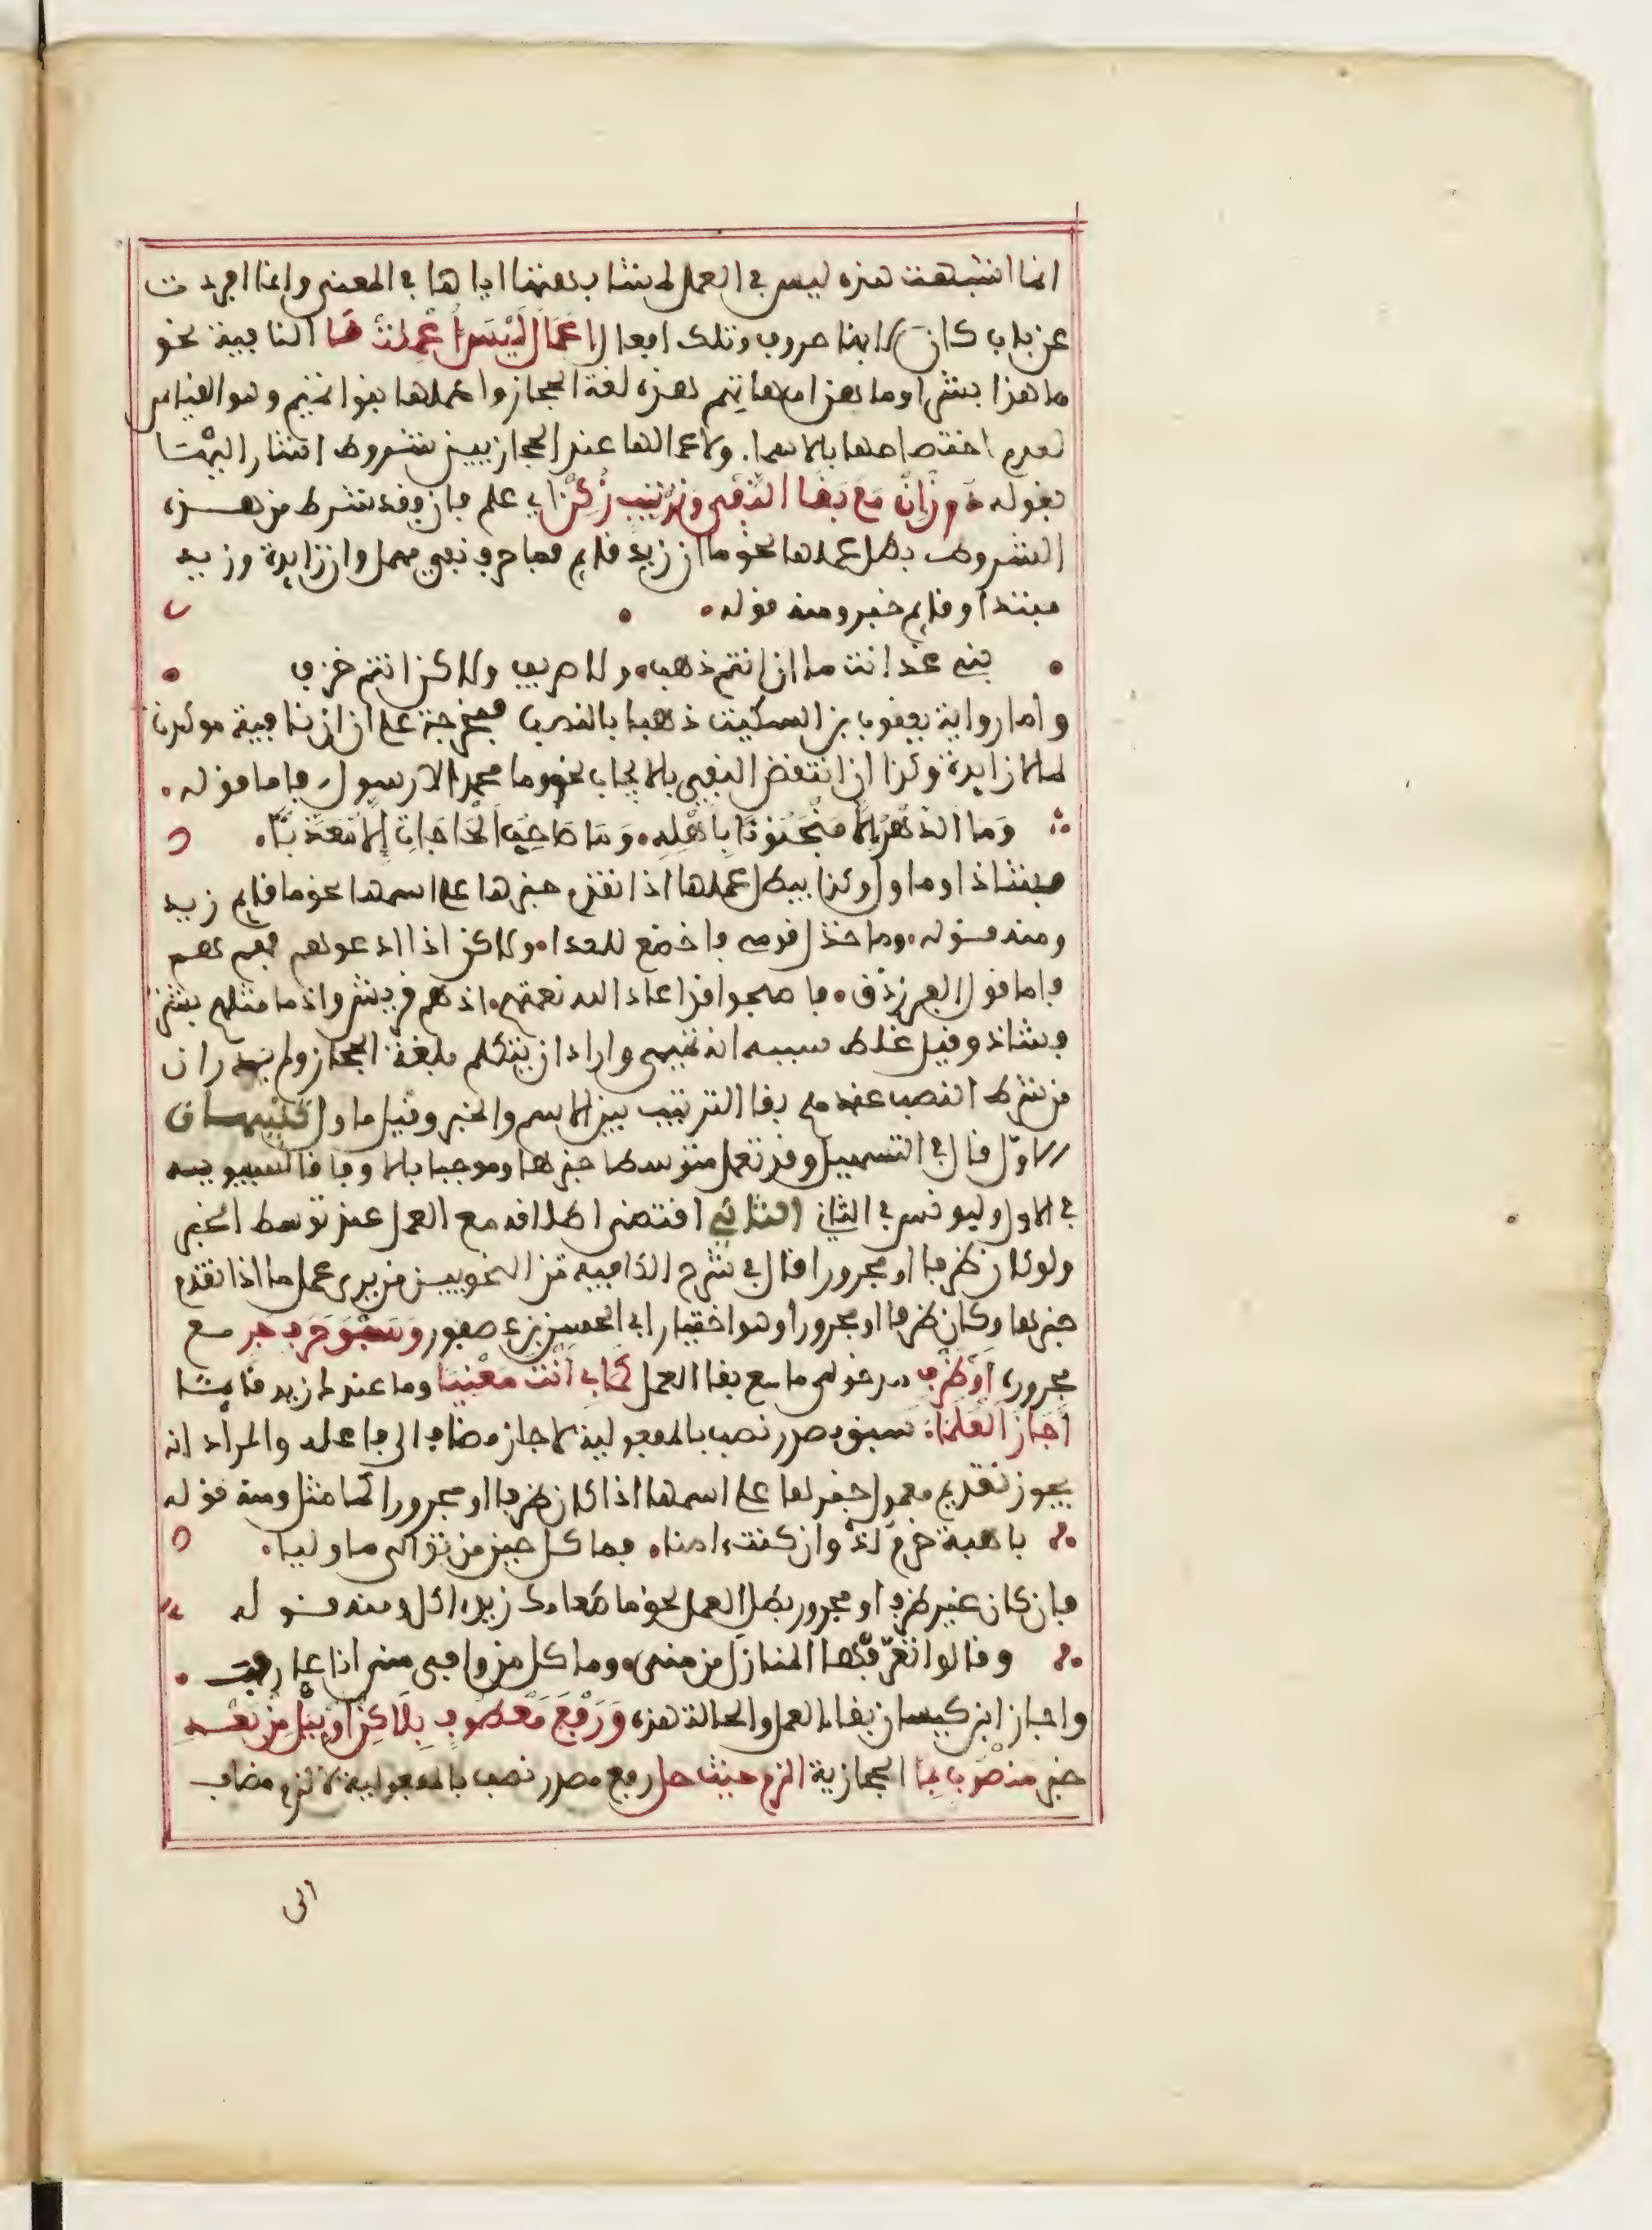 انما اشبهت هذه ليس في العمل لمشابهتها اياها في المعنى وانما افردت
عن باب كان لانها حروف وتلك افعال اعمال ليس اعملت ما النافية نحو
ما هذا بشرا وما هن امهاتهم هذه لغة الحجاز واهملها بنوا تميم وهو القياس
لعدم اختصاصها بالاسما. ولاعمالها عند الحجازيين شروط اشار اليها
بقوله دون ان مع بقا النفي وترتيب زكن اي علم فان فقد شرط من هذه
الشروط بطل عملها نحو ما ان زيد قايم فما حرف نفي مهمل وان زايدة وزيد
مبتدا وقايم خبر ومنه قوله
بني غدانت ما ان انتم ذهب ولا صريف ولاكن انتم خزف
واما رواية يعقوب بن السكيت ذهبا بالنصب فمخرجة على ان ان نافية موكدة
لما لا زايدة وكذا ان انتقض النفي بالا يجاب نحو وما محمد الا رسول فاما قوله
وما الدهر الا منجنونا باهله وما صاحب الحاجات الا معذبا
فشاذ او ماول وكذا يبطل عملها اذا تقدم خبرها على اسمها نحو ما قايم زيد
ومنه قوله وما خذل قومي فاخضع للعدا ولاكن اذا ادعوهم فهم هم
فاما قول الفرزدق فاصبحوا قد اعاد الله نعمتهم اذ هم قريش واذ ما مثلهم بشر
فشاذ وقيل غلط سببه انه تميمي واراد ان يتكلم بلغة الحجاز ولم يدر ان
من شرط النصب عندهم بقا الترتيب بين الاسم والخبر وقيل ماول تنبيهان
الاول قال في التسهيل وقد تعمل متوسطا خبرها وموجبا بالا وفاقا لسيبويه
في الاول وليونس في الثاني الثاني اقتضى اطلاقه منع العمل عند توسط الخبر
ولو كان ظرفا او مجرورا قال في شرح الكافية من النحويين من يرى عمل ما اذا تقدم
خبرها وكان ظرفا او مجرورا وهو اختيار ابي الحسن بن عصفور وسبق حرف جر مع
مجروره او ظرف مدخولي ما مع بقا العمل كما بي انت معنيا وما عندك زيد قايما
اجاز العلما. سبق مصدر نصب بالمفعولية لاجاز مضاف الى فاعله والمراد انه
يجوز تقديم معمول خبرها على اسمها اذا كان ظرفا او مجرورا كما مثل ومنه قوله
باهبة حزم لذ وان كنت امنا فما كل حين من توالي مواليا
فان كان غير ظرف او مجرور بطل العمل نحو ما طعامك زيد اكل ومنه قوله
وقالوا تعرفها المنازل من منى وما كل من وافى منى انا عارف
واجاز ابن كيسان بقا العمل والحالة هذه ورفع معطوف بلاكن او ببل من بعد
خبر منصوب بما الحجازية الزم حيث حل رفع مصدر نصب بالمفعولية لالزم مضاف
الى